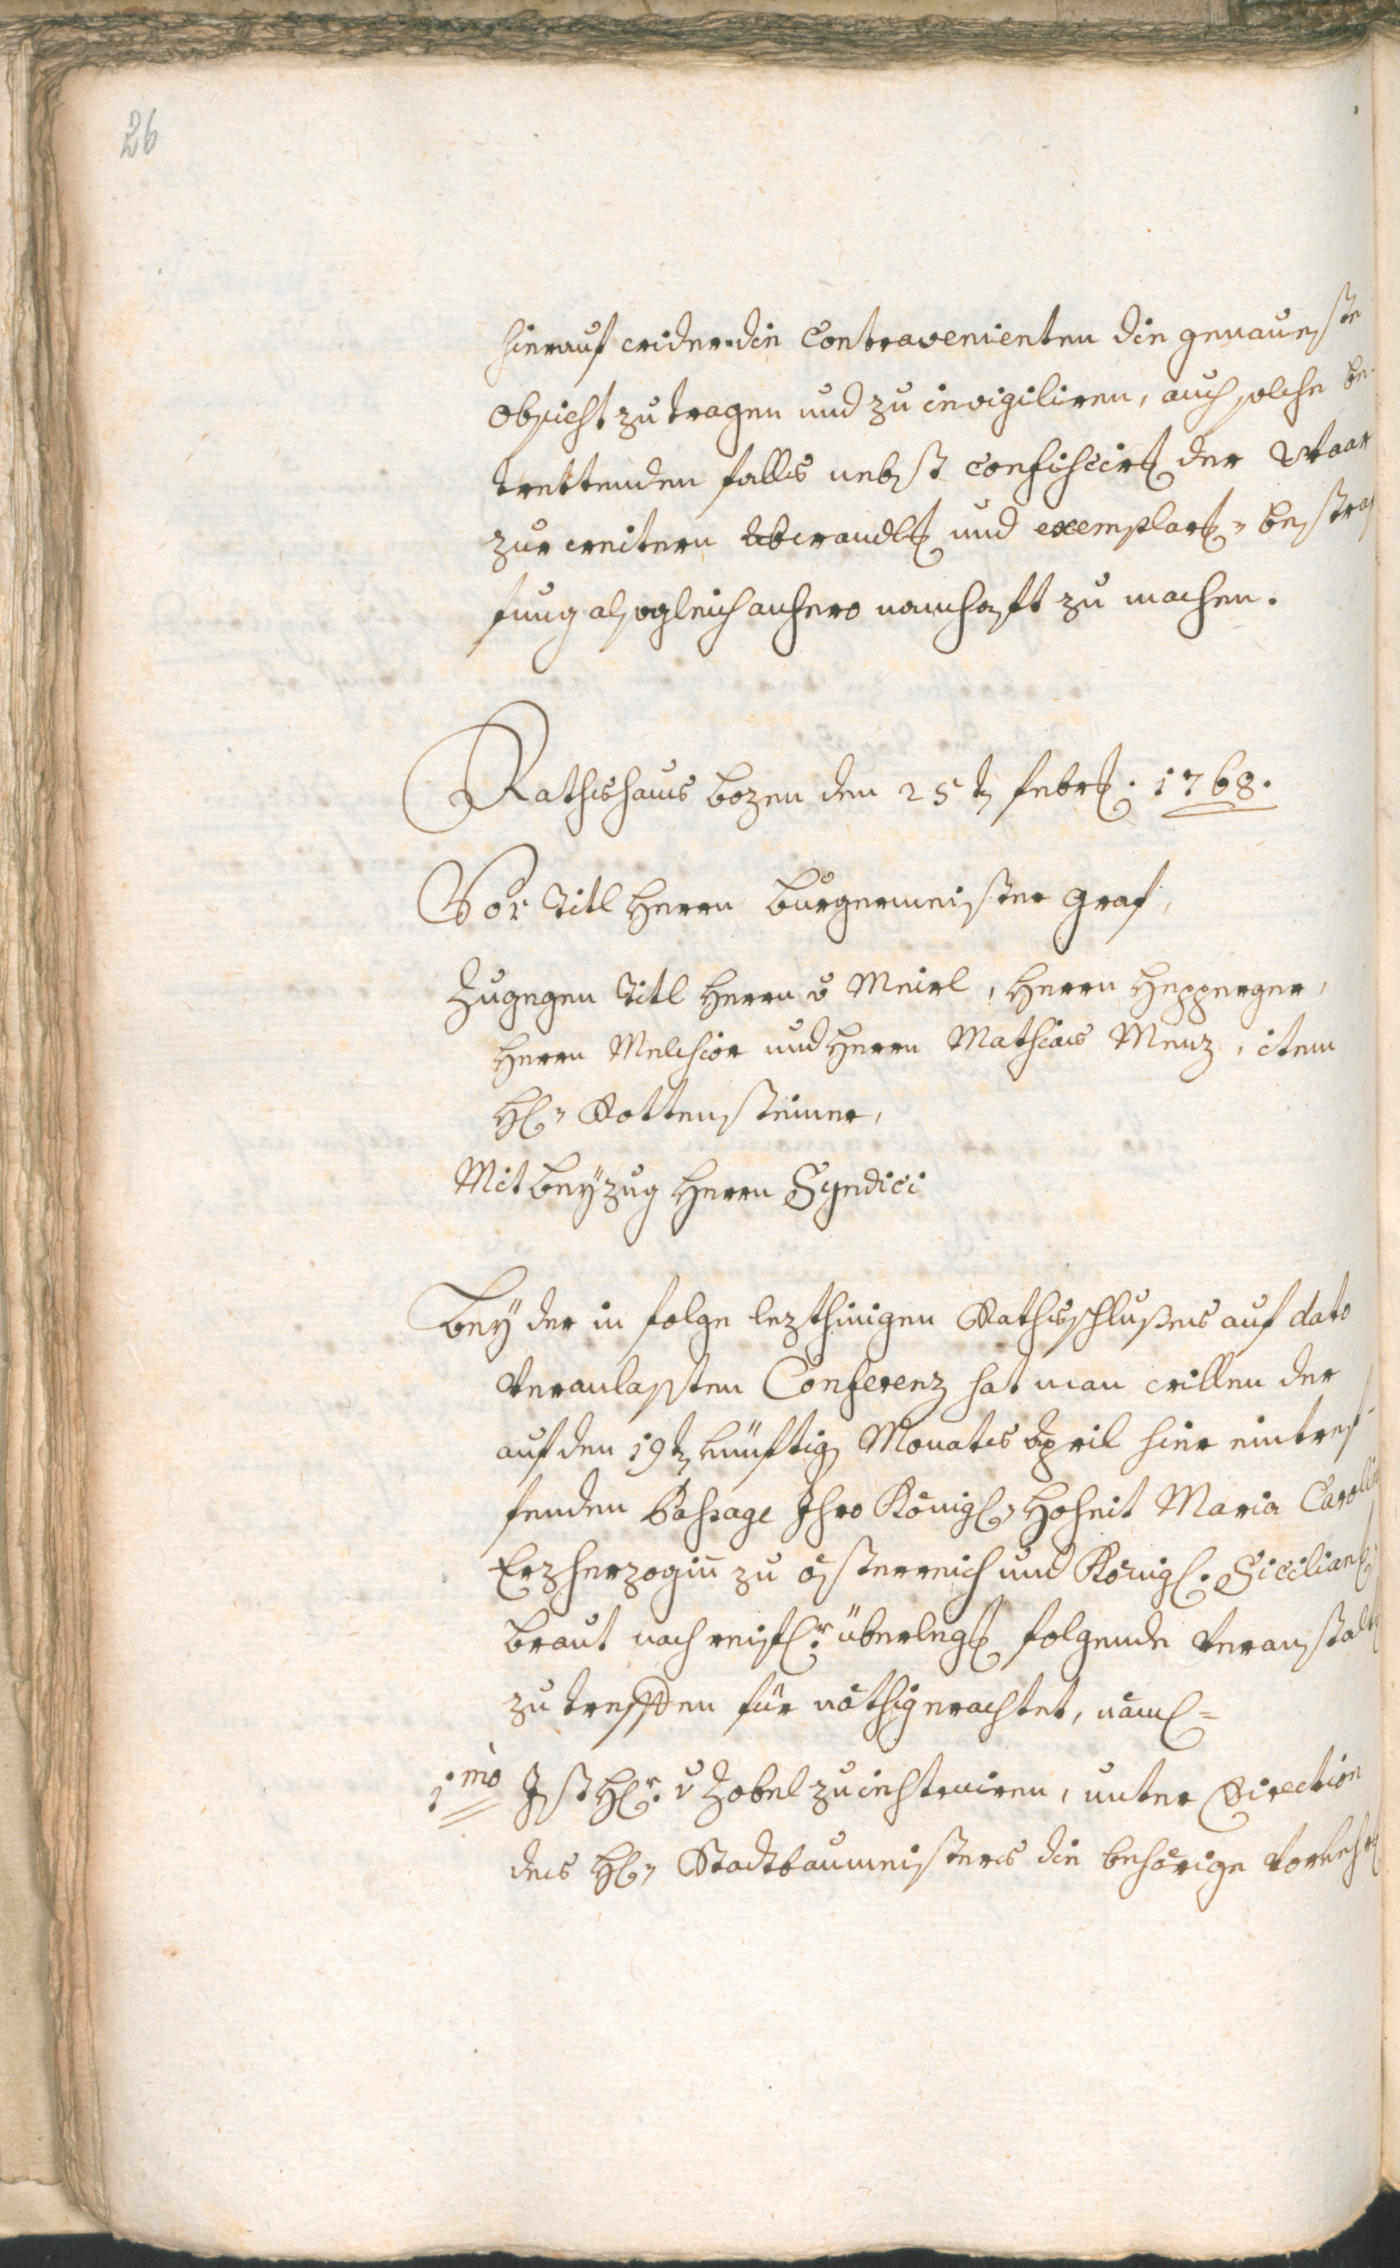 26
hierauf wider die Contravenienten die genaueste
obsicht zu tragen und zu invigiliren, auch solche be-
trettenden falls nebst confiscirg der Waar
zur weitern abwandlg und exemplarg. bestraf
fung alsogleich anhero namhaft zu machen.
Rathshaus bozen den 25t. febrg. 1768.
Vor Titl Herrn burgermeister Graf,
Zugegen Titl Herrn v Meirl, Herrn Hepperger,
Herrn Melchior und Herrn Mathias Menz, item
H. Rottensteiner,
Mit beyzug Herrn Syndici
Bey der in folge lezthinigen Rathsschlußes auf dato
veranlasten Conferenz hat man willen der
auf den 19t. künftig Monats April hier eintref-
fenden Passage Ihro Königl. Hoheit Maria Carolin
Erzherzogin zu österreich und Königl. Sicilian
braut nach reifl.r überlegg folgende veranstalt
zu treffen für nöthig erachtet, näml=
1mo Ist H.r v Zobel zu instruiren, unter Direction
des H. Stadtbaumeisters die behörige Vorkehr